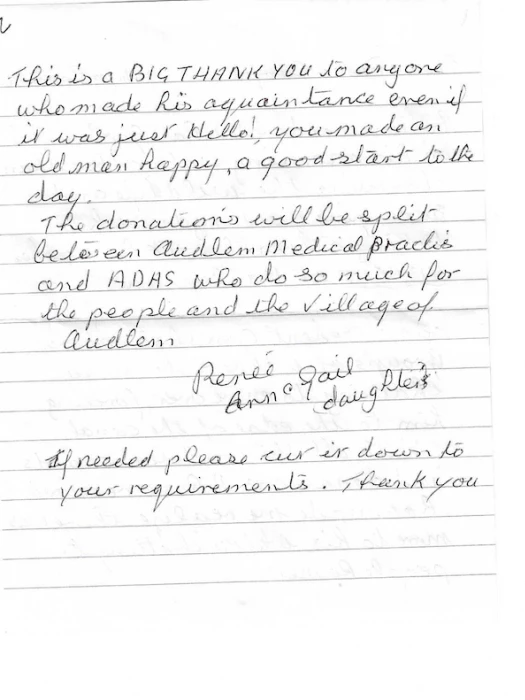 This is a BIG THANK YOU to anyone
who made his aquaintance even if
it was just Hello!, you made an
old man happy, a good start to the
day.
The donations will be split
between Audlem Medical Practis
and ADAS who do so much for
the people and the Village of
Audlem
Renée
Ann & Gail
daughters
If needed please cut it down to
your requirements. Thank you